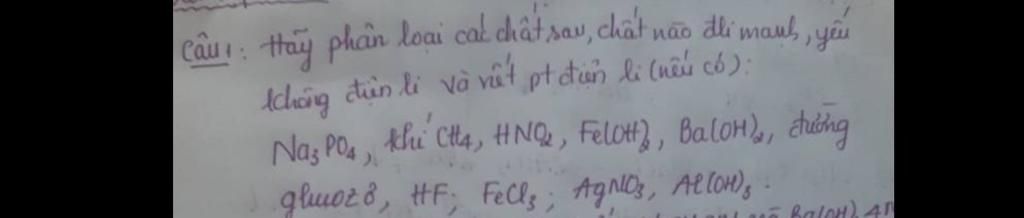 Câu 1: Hãy phân loại các chất sau, chất nào đli mạnh, yếu
không điện li và viết pt điện li (nếu có):
Na₃PO₄, khí CH₄, HNO₂, Fe(OH)₃, Ba(OH)₂, đường
glucozơ, HF; FeCl₃; AgNO₃, Al(OH)₃.
Ba(OH)₂